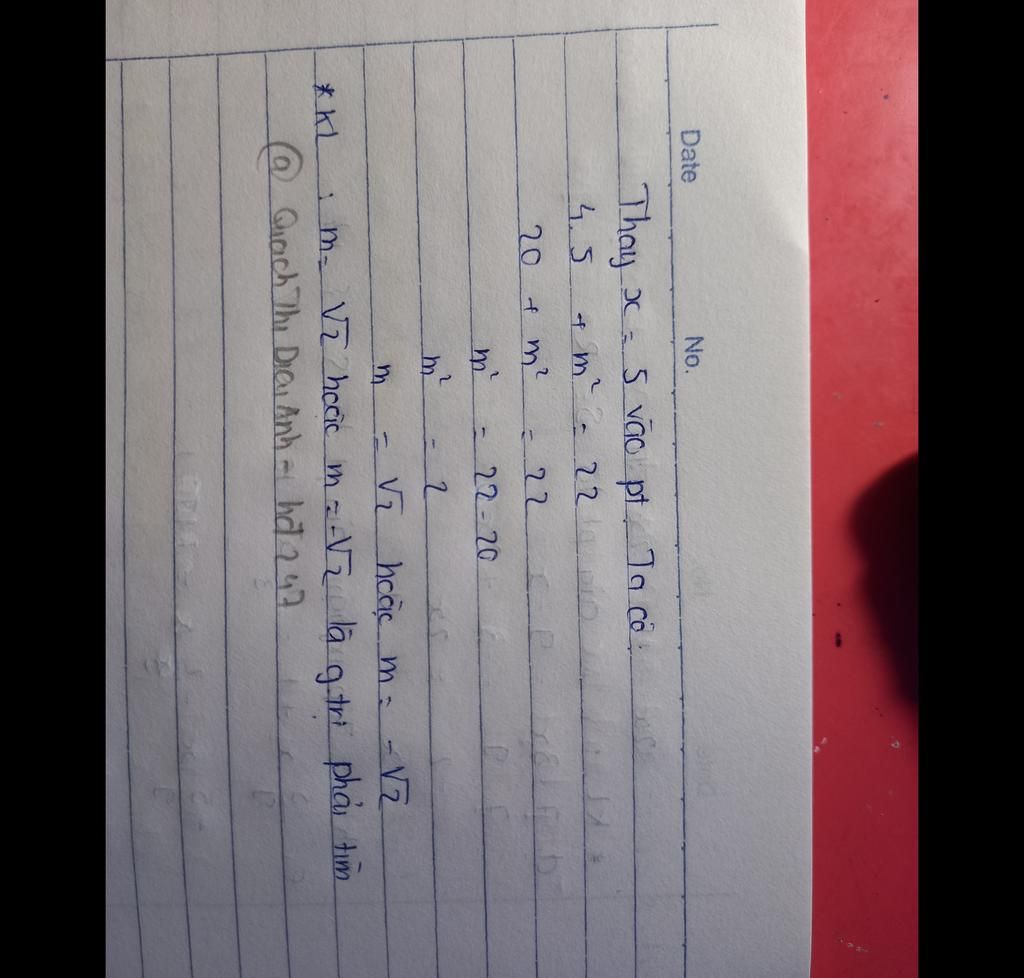 Date No.
Thay x = 5 vào pt. Ta có
4.5 + m² = 22
20 + m² = 22
m² = 22 - 20
m² = 2
m = √2 hoặc m = -√2
* KL : m = √2 hoặc m = -√2 là g.trị phải tìm
@ Quách Thị Diệu Anh - hd247